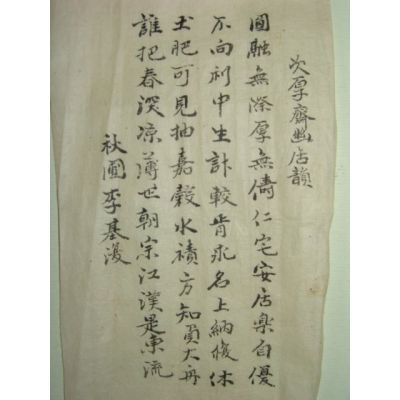 次厚齋幽居韻
圓融無際厚無儔仁宅安居樂自優
不向利中生計較肯求名上納休
土肥可見抽嘉穀水積方知負大舟
誰把春深凉薄世朝宗江漢是東流
秋圃李基漫